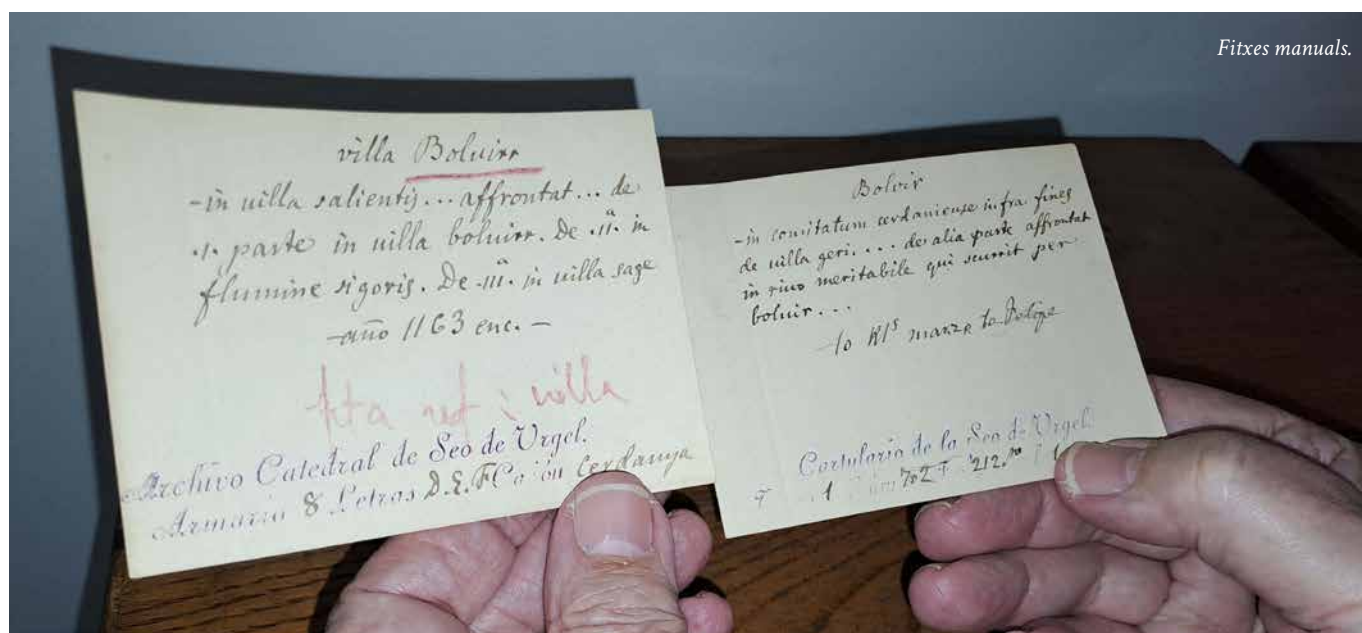 Fitxes manuals.
villa Boluirr
-in uilla salientis... affrontat... de
.I. parte in uilla boluirr. De .II.ª in
flumine sigoris. De .III.ª in uilla sage
-año 1163 enc.-
fita
villa
Archivo Catedral de Seo de Urgel.
Armario 8 Letras D.E.F Ca on Cerdanya
Bolvir
-in comitatum cerdaniense infra fines
de uilla geri.... de alia parte affrontat
in riuo meritabile qui scurrit per
boluir...
-10 Kls marze
Cartulario de la Seo de Urgel
1 702 F 212